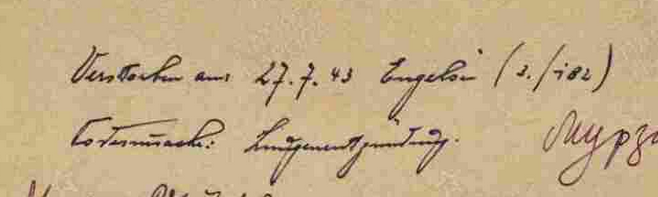 Verstorben am: 27.7.43 Engelsü (2./182)
Todesursach: Lungenentzündung. Мурз